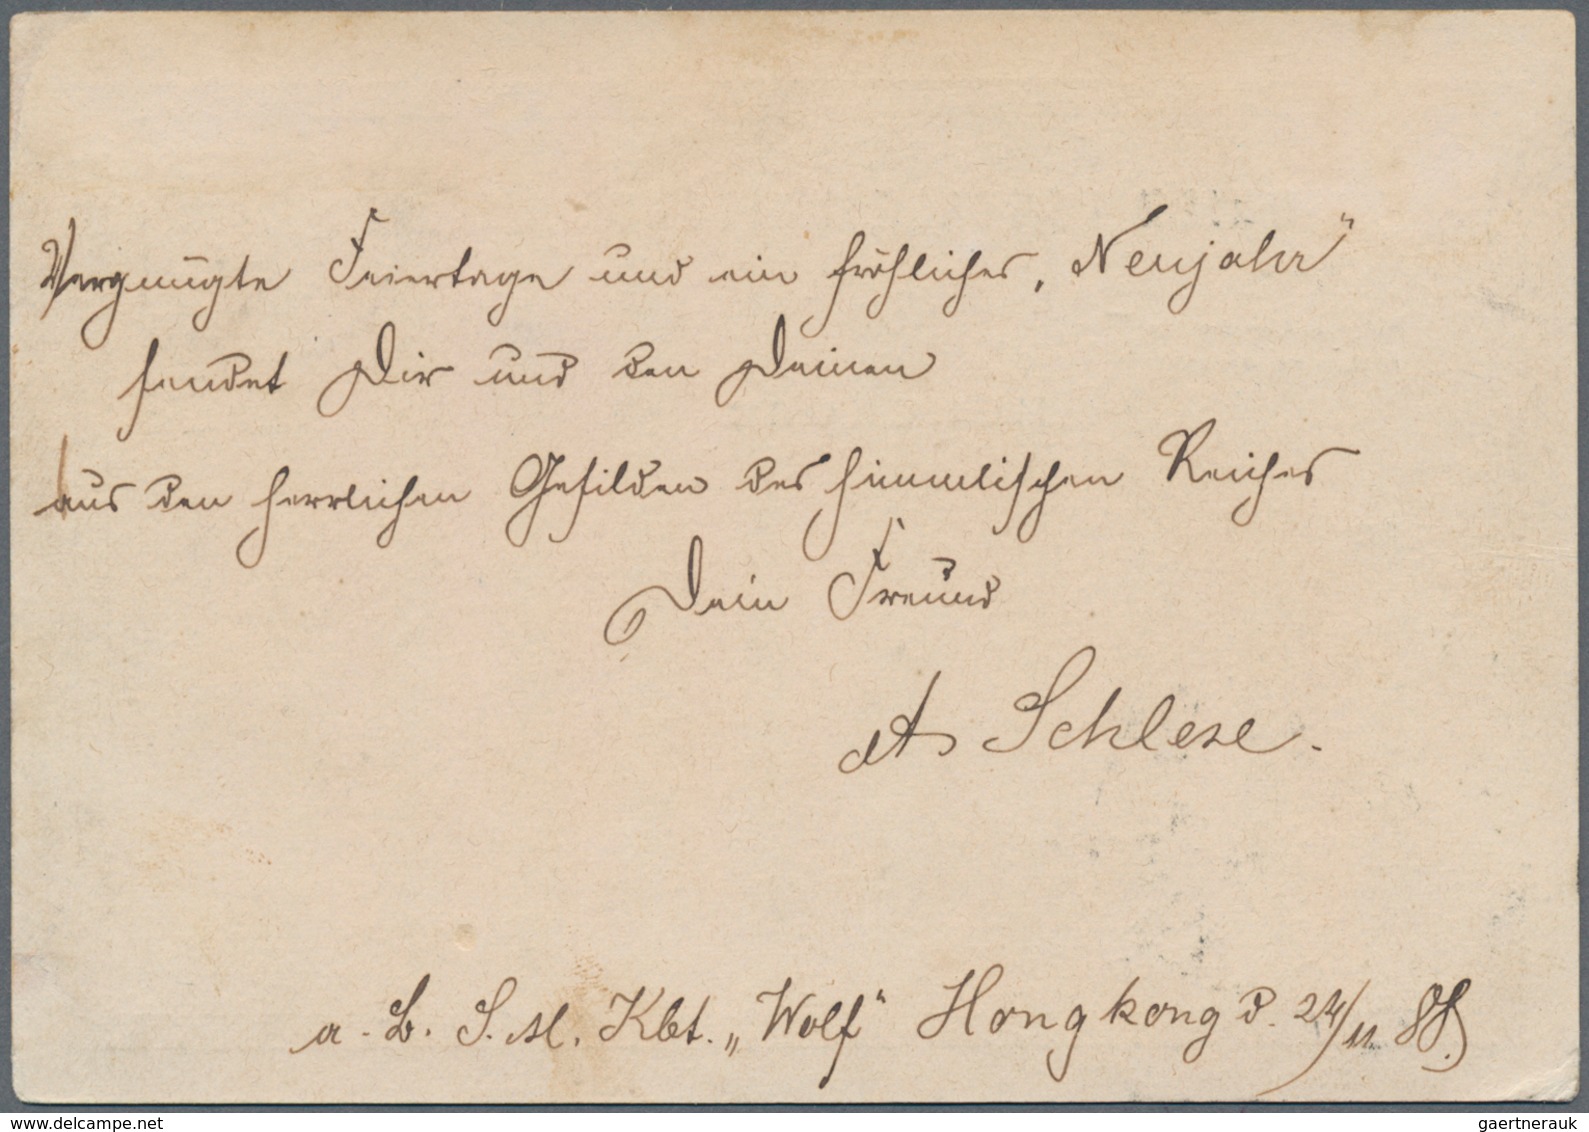 Vergnügte Feiertage und ein fröhliches „Neujahr“
sendet Dir und den Deinen
aus den herrlichen Gefilden des himmlischen Reiches
Dein Freund
A Schlese.
a. B. S. M. Kbt. „Wolf“ Hongkong d. 24/11 88.
delcampe.net
gaertnerauk